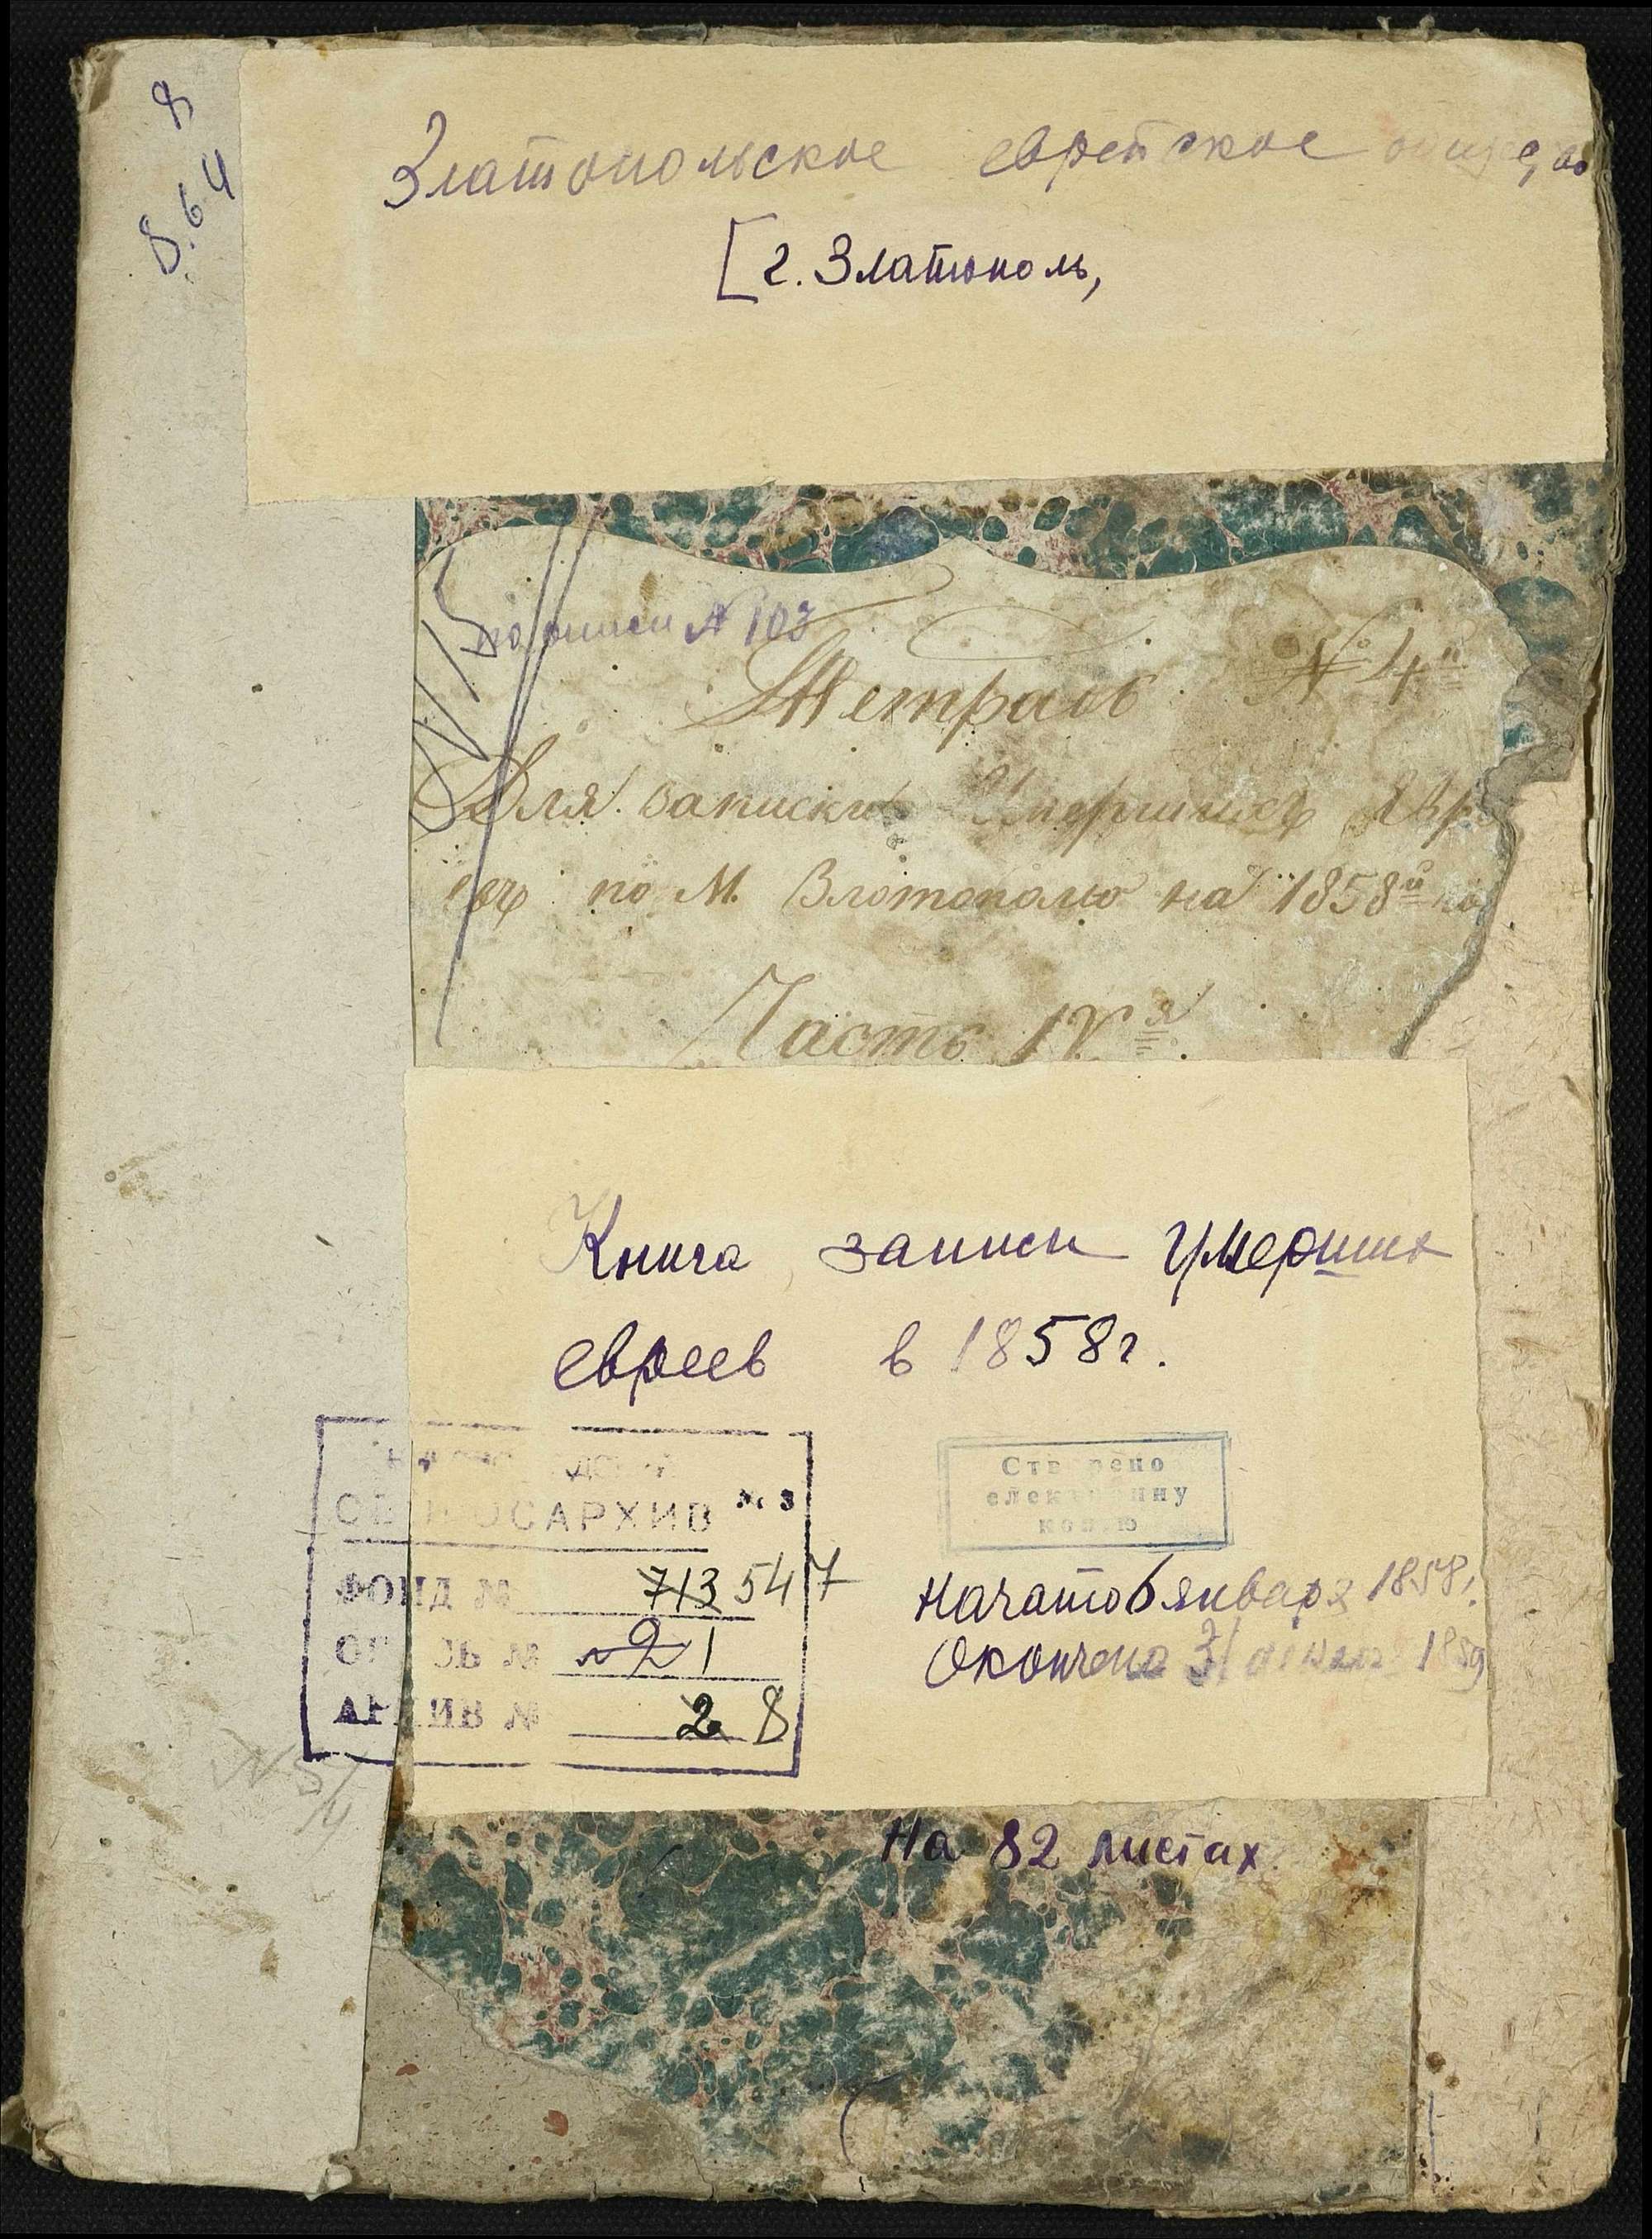 8
8.64
Златопольское еврейское
[г. Златополь,
по описи № 103
№ 4й
Тетрадь
Для записки Умершихъ Евр
евъ по М. Злотополю на 1858й
Часть IVя
Книга записи умерших
евреев в 1858г.
ОБ ГОСАРХИВ № 3
ФОНД № 713 547
ОПИСЬ № 2 1
АРХИВ № 2 8
Створено
електронну
копію
Начато 6 января 1858г
Окончено 31 1859
№ 5/4
На 82 листах